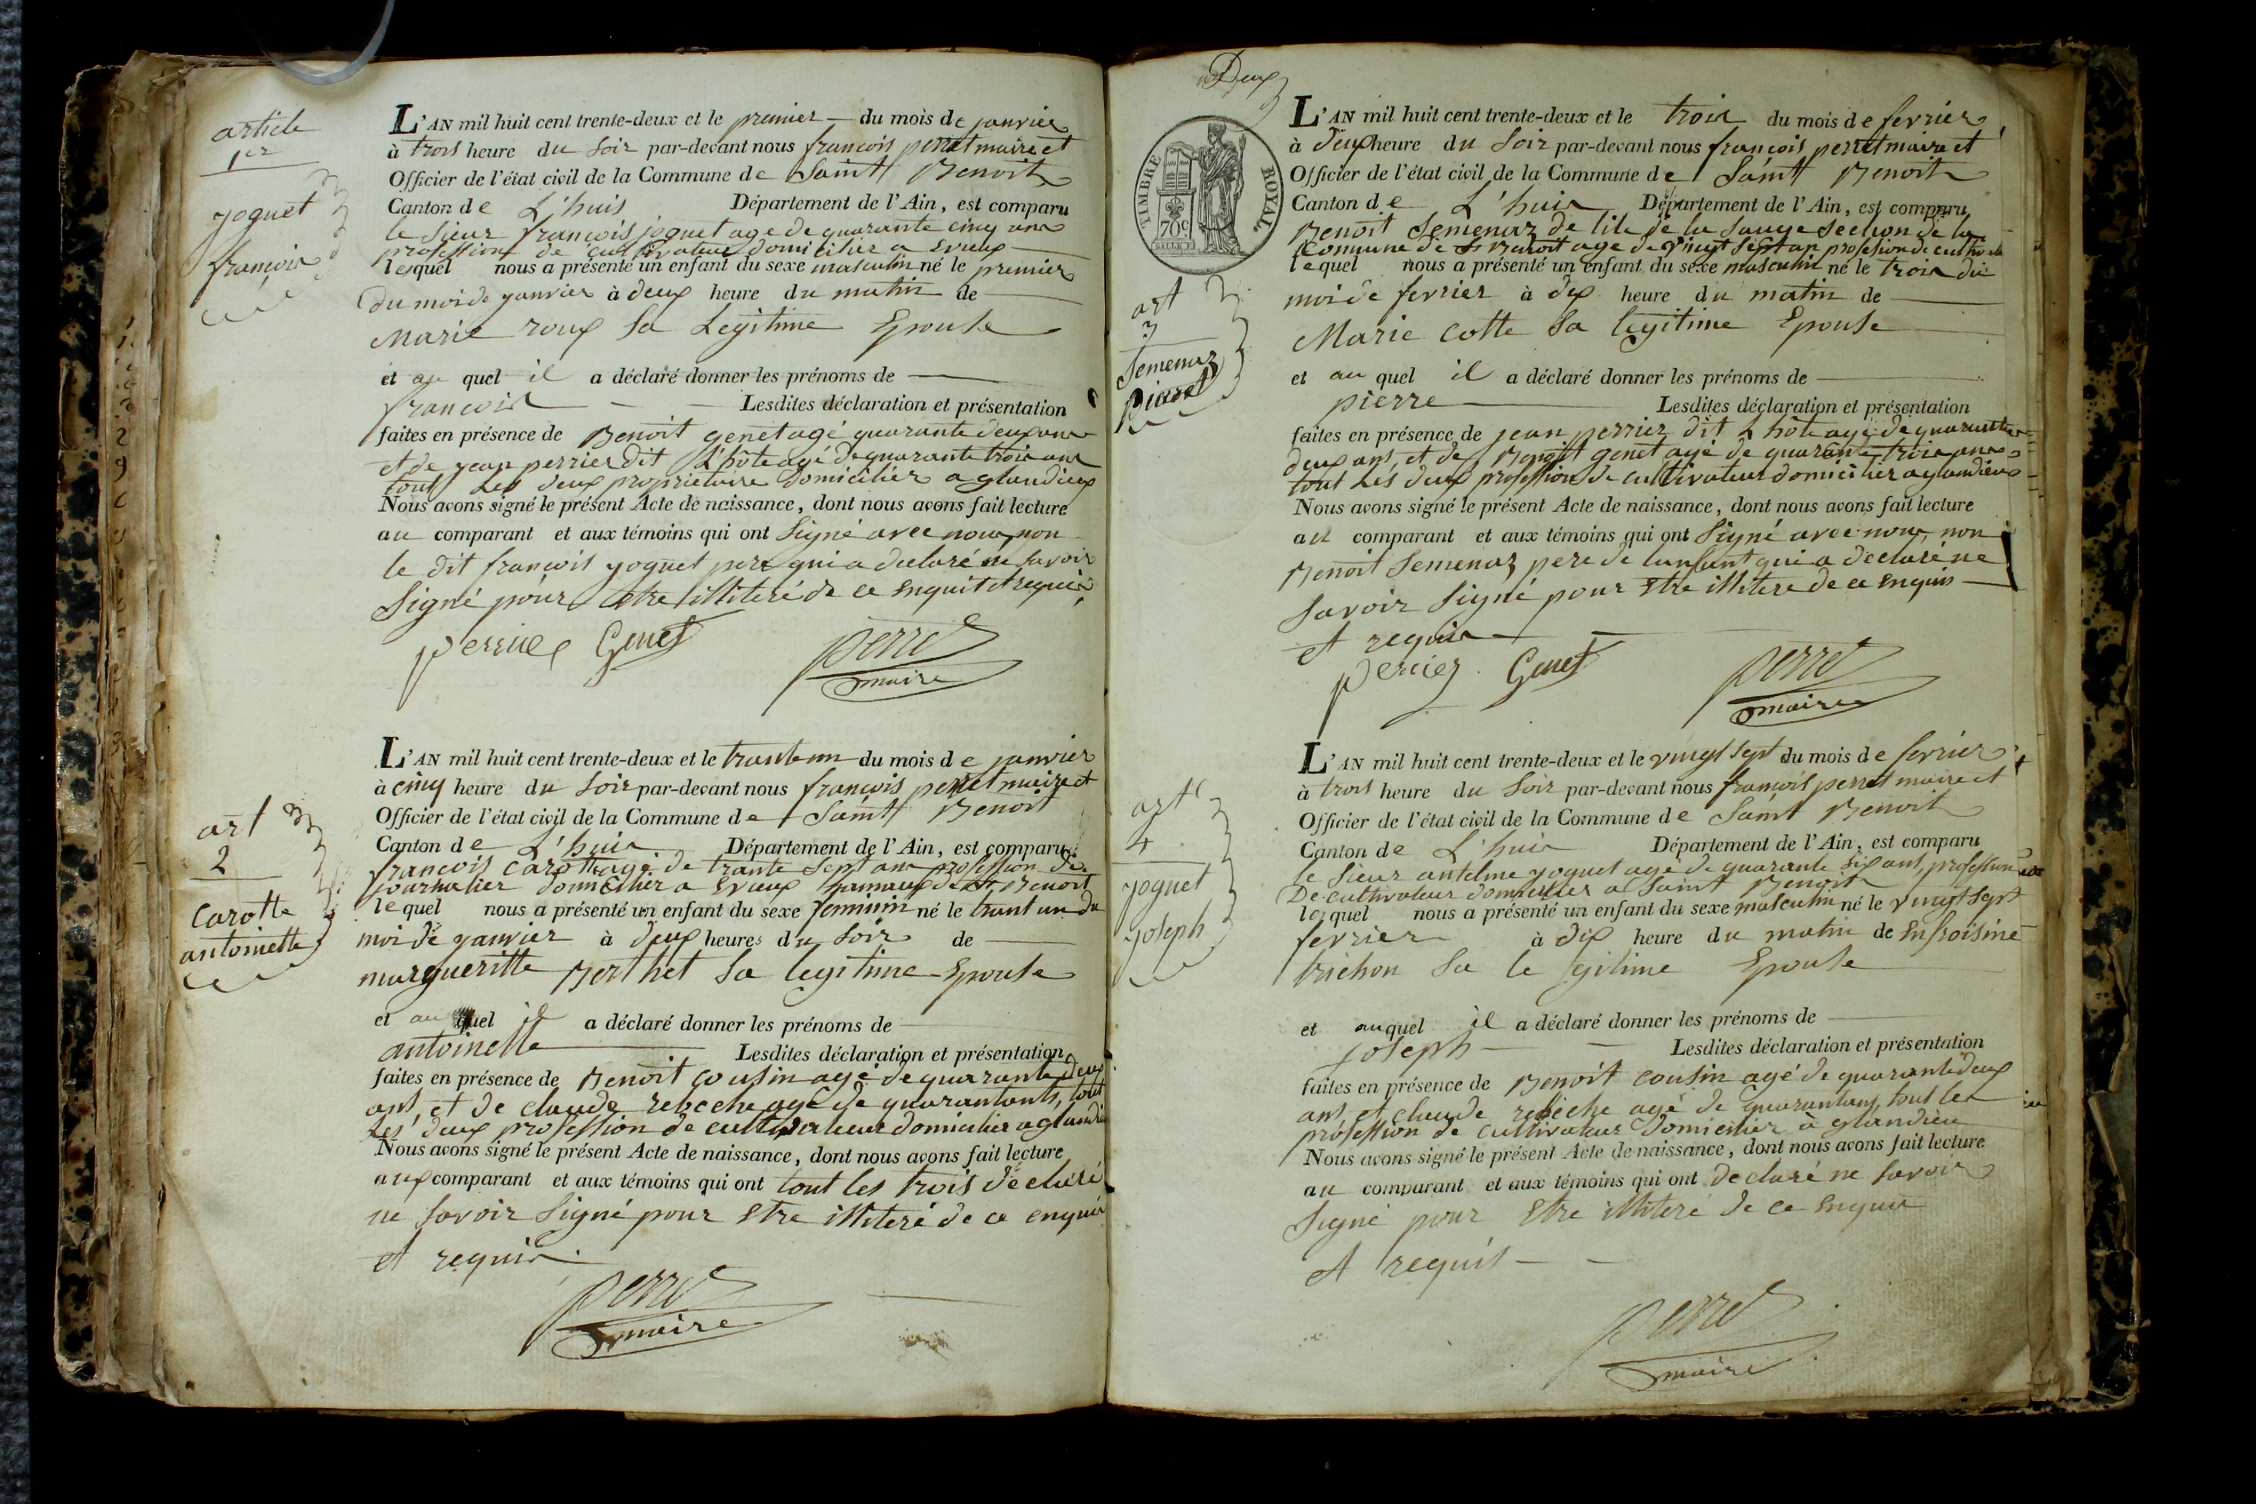 article
1er
yoguet
francois
L'AN mil huit cent trente-deux et le premier du mois de janvier
à trois heure du soir par-devant nous francois perret maire et
Officier de l'état civil de la Commune de Saint Benoit
Canton de L'huis Département de l'Ain, est comparu
le sieur francois joguet age de quarante cinq ans
profession de cultivateur domicilier a Evieux
lequel nous a présenté un enfant du sexe masculin né le premier
du moi de janvier à deux heure du matin de
Marie roux sa Legitime Epouse
et au quel il a déclaré donner les prénoms de
francois Lesdites déclaration et présentation
faites en présence de Benoit genet agé quarante deux ans
et de jean perrier dit L'hôte agé de quarante trois ans
tout Les deux proprietaire domicilier a glandieux
Nous avons signé le présent Acte de naissance, dont nous avons fait lecture
au comparant et aux témoins qui ont Signé avec nous, non
le dit francois yoguet pere qui a declaré ne savoir
Signé pour Estre illiteré de ce enquit et requis
perrier Genet perret
maire
art
2
Carotte
antoinette
L'AN mil huit cent trente-deux et le trante un du mois de janvier
à cinq heure du soir par-devant nous francois perret maire et
Officier de l'état civil de la Commune de Saint Benoit
Canton de L'huis Département de l'Ain, est comparu
francois Carotte agé de trante sept ans profession de
journalier domicilier a Evieux hamaux de St Benoit
lequel nous a présenté un enfant du sexe feminin né le trant un du
moi de janvier à deux heures du soir de
margueritte Berthet sa legitime Epouse
et au quel il a déclaré donner les prénoms de
antoinette Lesdites déclaration et présentation
faites en présence de Benoit cousin agé de quarante deux
ans, et de claude rebeche agé de quarantants, tout
Les deux profession de cultivateur domicilier a glandieu
Nous avons signé le présent Acte de naissance, dont nous avons fait lecture
aux comparant et aux témoins qui ont tout les trois declaré
ne savoir Signé pour Estre illiteré de ce enquis
et requis.
perret
maire
Deux
TIMBRE ROYAL
70c
art
3
Semenaz
pierre
L'AN mil huit cent trente-deux et le trois du mois de fevrier
à Deux heure du Soir par-devant nous francois perret maire et
Officier de l'état civil de la Commune de Saint Benoit
Canton de L'huis Département de l'Ain, est comparu
Benoit Semenaz de lile de la Sauge section de la
Commune de St Benoit age de vingt sept an profession de cultivateur
lequel nous a présenté un enfant du sexe masculin né le trois du
moi de fevrier à dix heure du matin de
Marie cotte sa legitime Epouse
et au quel il a déclaré donner les prénoms de
pierre Lesdites déclaration et présentation
faites en présence de jean perrier dit L'hôte agé de quarante
deux ans, et de Benoit genet agé de quarante trois ans
tout Les deux profession de cultivateur domicilier a glandieu
Nous avons signé le présent Acte de naissance, dont nous avons fait lecture
au comparant et aux témoins qui ont Signé avec nous, non
Benoit Semenaz pere de lanfant qui a declaré ne
savoir Signé pour Estre illitere de ce enquis
et requis
perrier Genet perret
maire
arte
4
yoguet
joseph
L'AN mil huit cent trente-deux et le vingt sept du mois de fevrier
à trois heure du Soir par-devant nous francois perret maire et
Officier de l'état civil de la Commune de Saint Benoit
Canton de L'huis Département de l'Ain, est comparu
le sieur antelme yoguet agé de quarante six ans, profession
De cultivateur domicilier a Saint Benoit
lequel nous a présenté un enfant du sexe masculin né le vingt sept
fevrier à dix heure du matin de Enfroisine
trichon sa legitime Epouse
et auquel il a déclaré donner les prénoms de
joseph Lesdites déclaration et présentation
faites en présence de Benoit cousin agé de quarante deux
ans et claude rebeche agé de quarantans, tout les
profession de cultivateur domicilier a glandieu
Nous avons signé le présent Acte de naissance, dont nous avons fait lecture
au comparant et aux témoins qui ont declaré ne savoir
Signé pour Estre illiteré de ce enquis
et requis
perret
maire